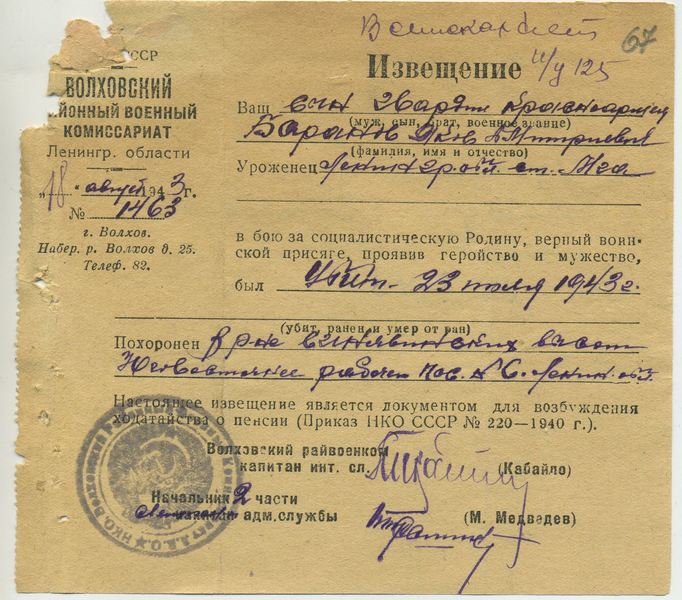 67
Извещение
и/у 125
СССР
ВОЛХОВСКИЙ
РАЙОННЫЙ ВОЕННЫЙ
КОМИССАРИАТ
Ленингр. области
„18" август 1943 г.
№ 1463
г. Волхов.
Набер. р. Волхов д. 25.
Телеф. 82.
Ваш сын Гвардии красноармеец
(муж, сын, брат, военное звание)
Баранов Яков Дмитриевич
(фамилия, имя и отчество)
Уроженец Ленинград. ст. Мга
в бою за социалистическую Родину, верный воин-
ской присяге, проявив геройство и мужество,
был убит 23 июля 1943 г.
(убит, ранен и умер от ран)
Похоронен в р-не Синявинских высот
Юговосточнее рабочей пос. № 6. Ленин. обл.
Настоящее извещение является документом для возбуждения
ходатайства о пенсии (Приказ НКО СССР № 220—1940 г.).
Волховский райвоенком
капитан инт. сл. (Кабайло)
Начальник 2 части
адм. службы (М. Медведев)